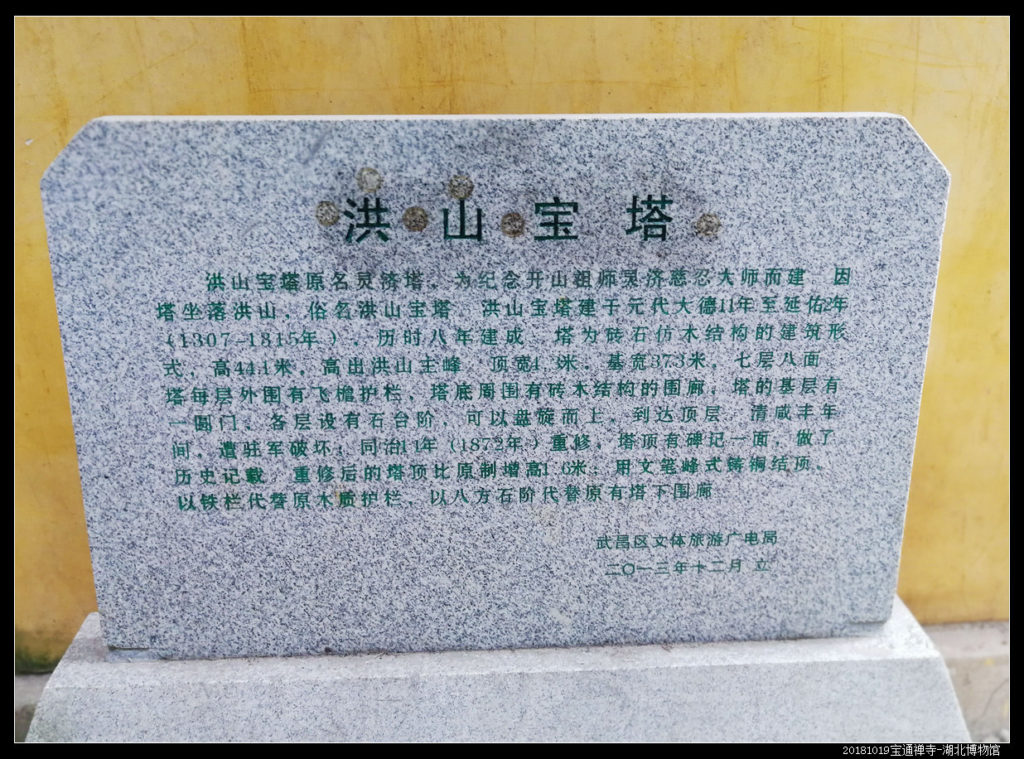 洪山宝塔
洪山宝塔原名灵济塔，为纪念开山祖师灵济慈忍大师而建，因
塔坐落洪山，俗名洪山宝塔。洪山宝塔建于元代大德11年至延佑2年
（1307-1315年），历时八年建成。塔为砖石仿木结构的建筑形
式，高44.1米，高出洪山主峰，顶宽4.3米，基宽37.3米，七层八面，
塔每层外围有飞檐护栏，塔底周围有砖木结构的围廊。塔的基层有
一圆门，各层设有石台阶，可以盘旋而上，到达顶层。清咸丰年
间，遭驻军破坏；同治11年（1872年）重修，塔顶有碑记一面，做了
历史记载。重修后的塔顶比原制增高1.6米；用文笔峰式铸铜结顶，
以铁栏代替原木质护栏，以八方石阶代替原有塔下围廊
武昌区文体旅游广电局
二〇一三年十二月 立
20181019宝通禅寺-湖北博物馆